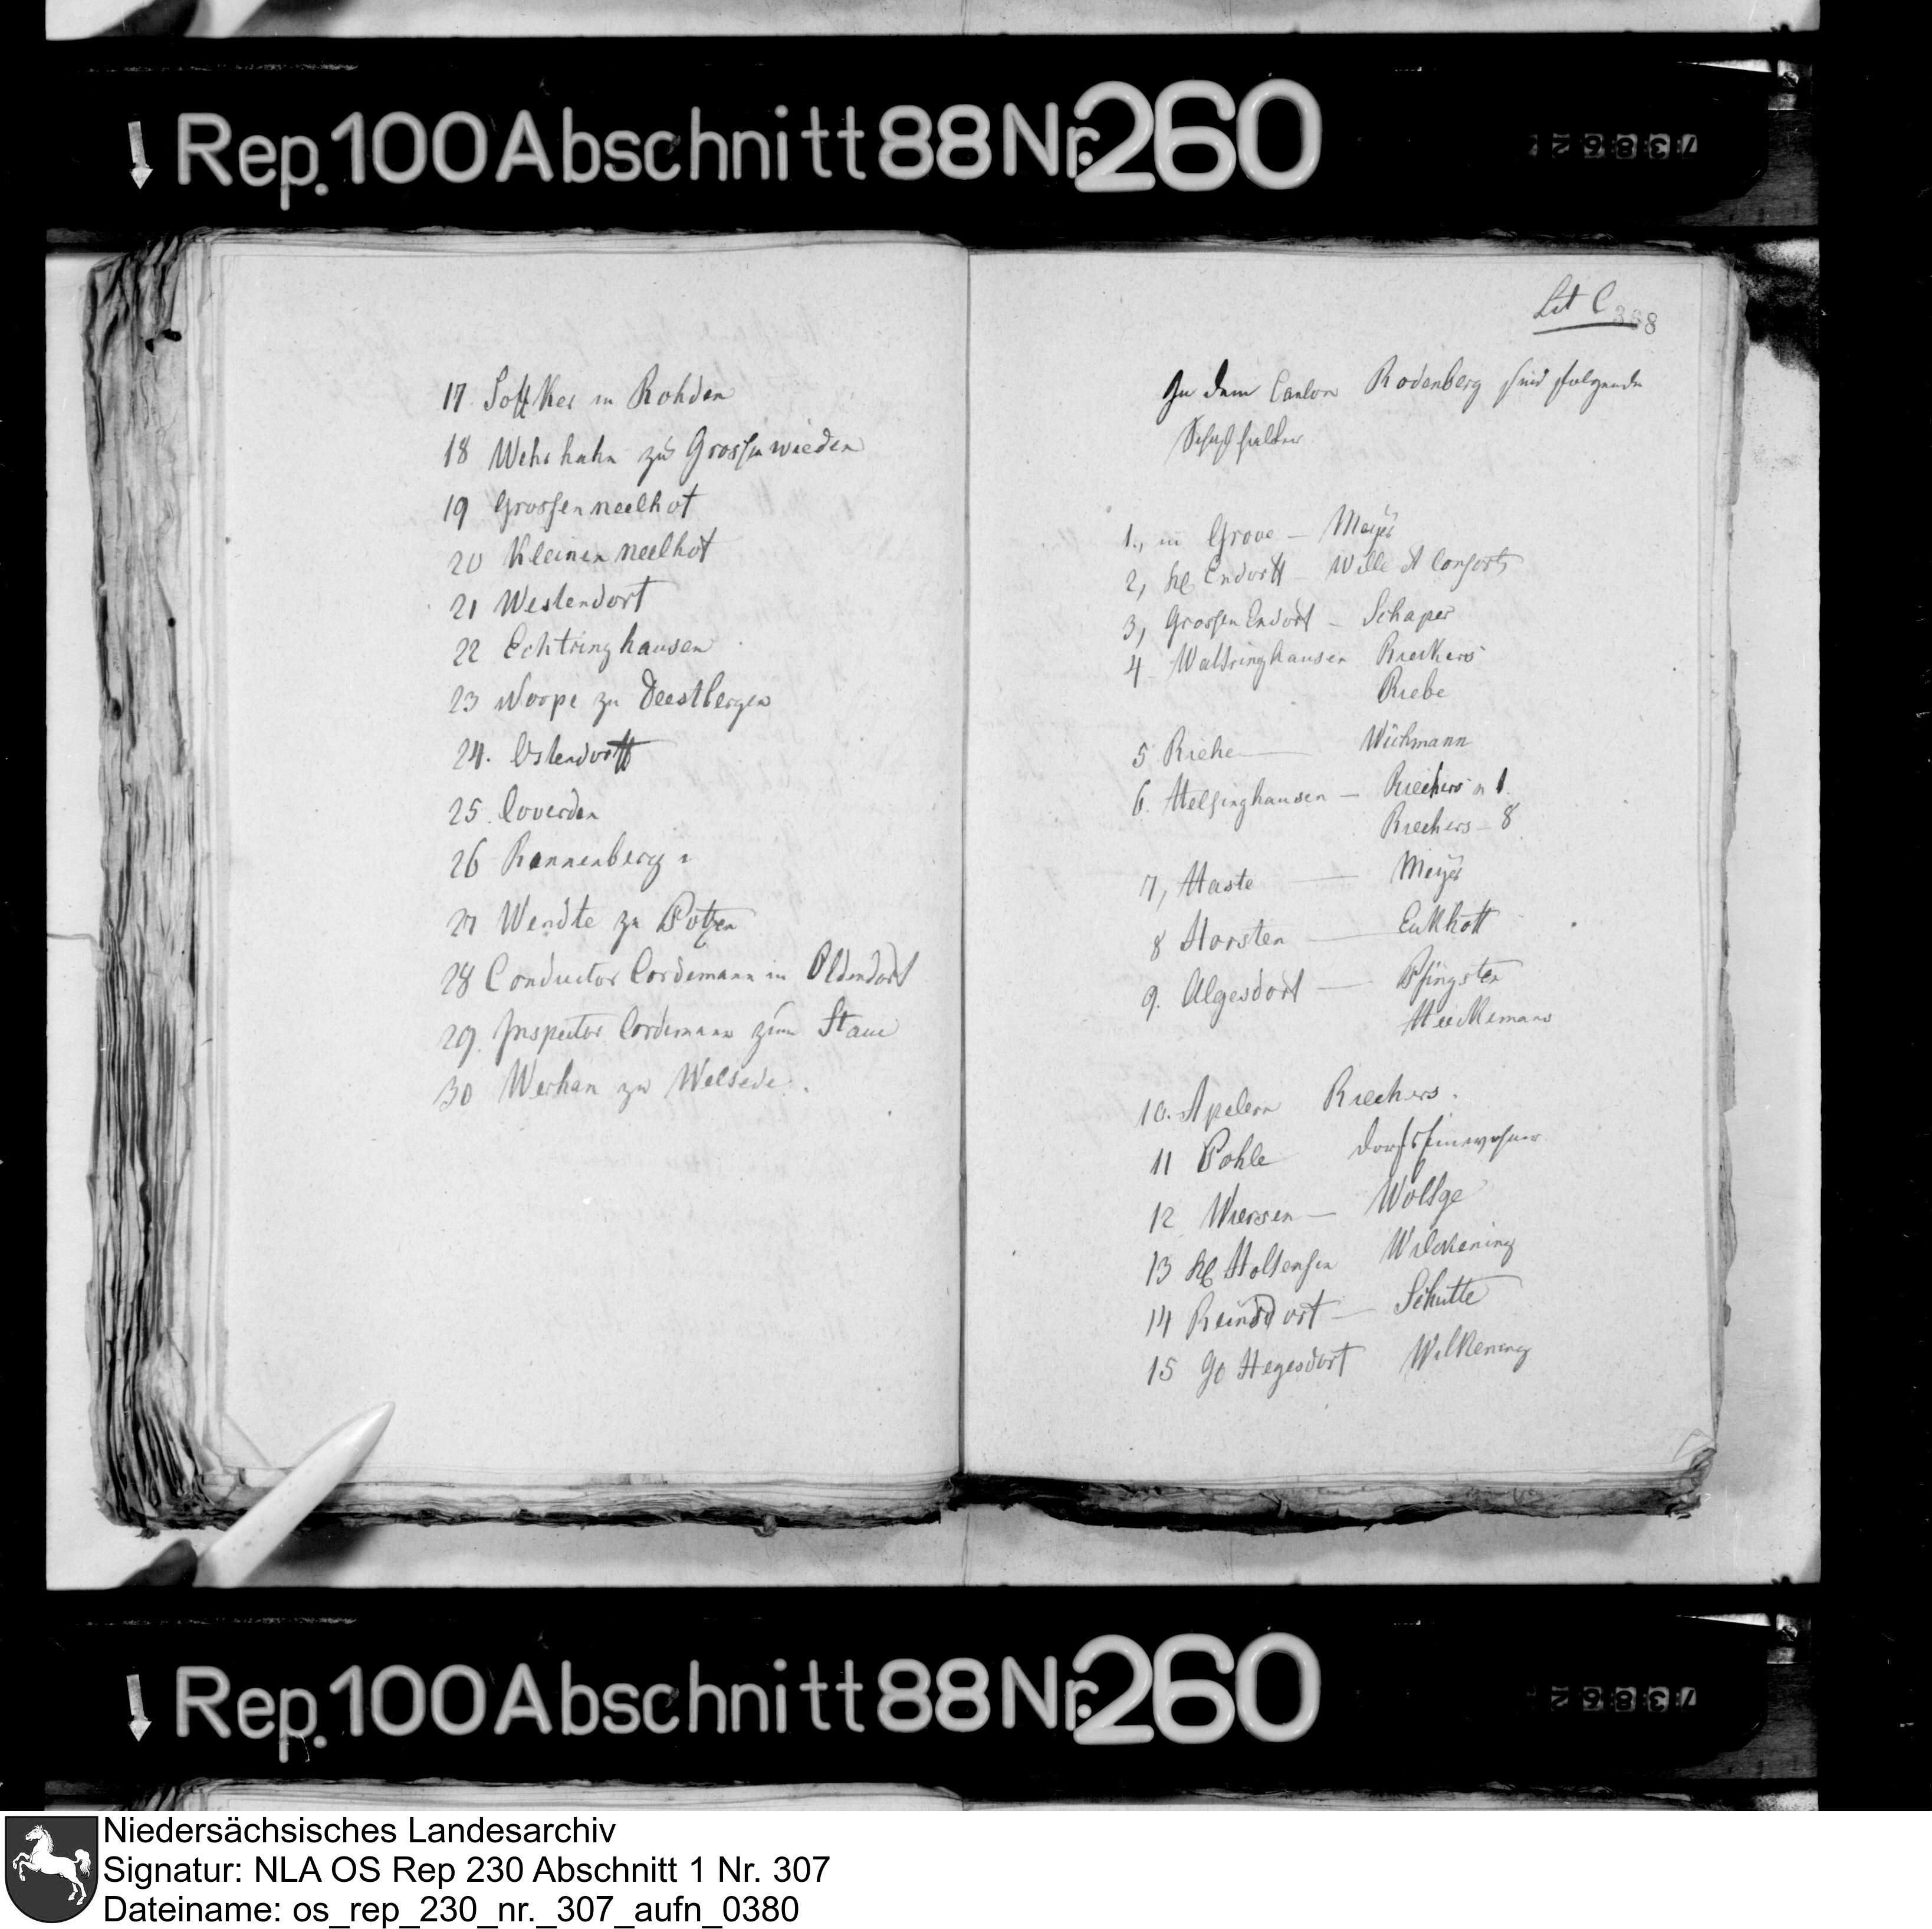 Rep. 100 Abschnitt 88 Nr. 260
73862
17 Söffker in Rohden
18 Wehrhahn zu Grossenwieden
19 Grossenneelhof
20 Kleinenneelhof
21 Westendorf
22 Echtringhausen
23 Noope zu Deestbergen
24. Ostendorff
25. Coverden
26 Rannenberg
27 Wendte zu Potzen
28 Conductor Cordemann in Oldendorf
29. Inspector Cordemann zum Stau
30 Werhan zu Welsede.
Lit C
388
In dem Canton Rodenberg sind folgende
Schafhalter
1., in Grove — Meyer
2, kl Endorff — Wille et Consorts
3, Grossen Endorf — Schaper
4 Waltringhausen Rieckers
Riebe
5 Riehe — Wichmann
6. Helsinghausen — Riechers n 1.
Riechers — 8
7, Haste — Meyer
8 Horsten — Eickhoff
9. Algesdorf — Pfingsten
Heickemann
10. Apelern Riechers.
11 Pohle Dorfseinwohner
12 Wiersen — Wöltge
13 kl Holtensen Wilckening
14 Reinsdorf — Schutte
15 Gr Hegesdorf Wilkening
Rep. 100 Abschnitt 88 Nr. 260
73862
Niedersächsisches Landesarchiv
Signatur: NLA OS Rep 230 Abschnitt 1 Nr. 307
Dateiname: os_rep_230_nr._307_aufn_0380